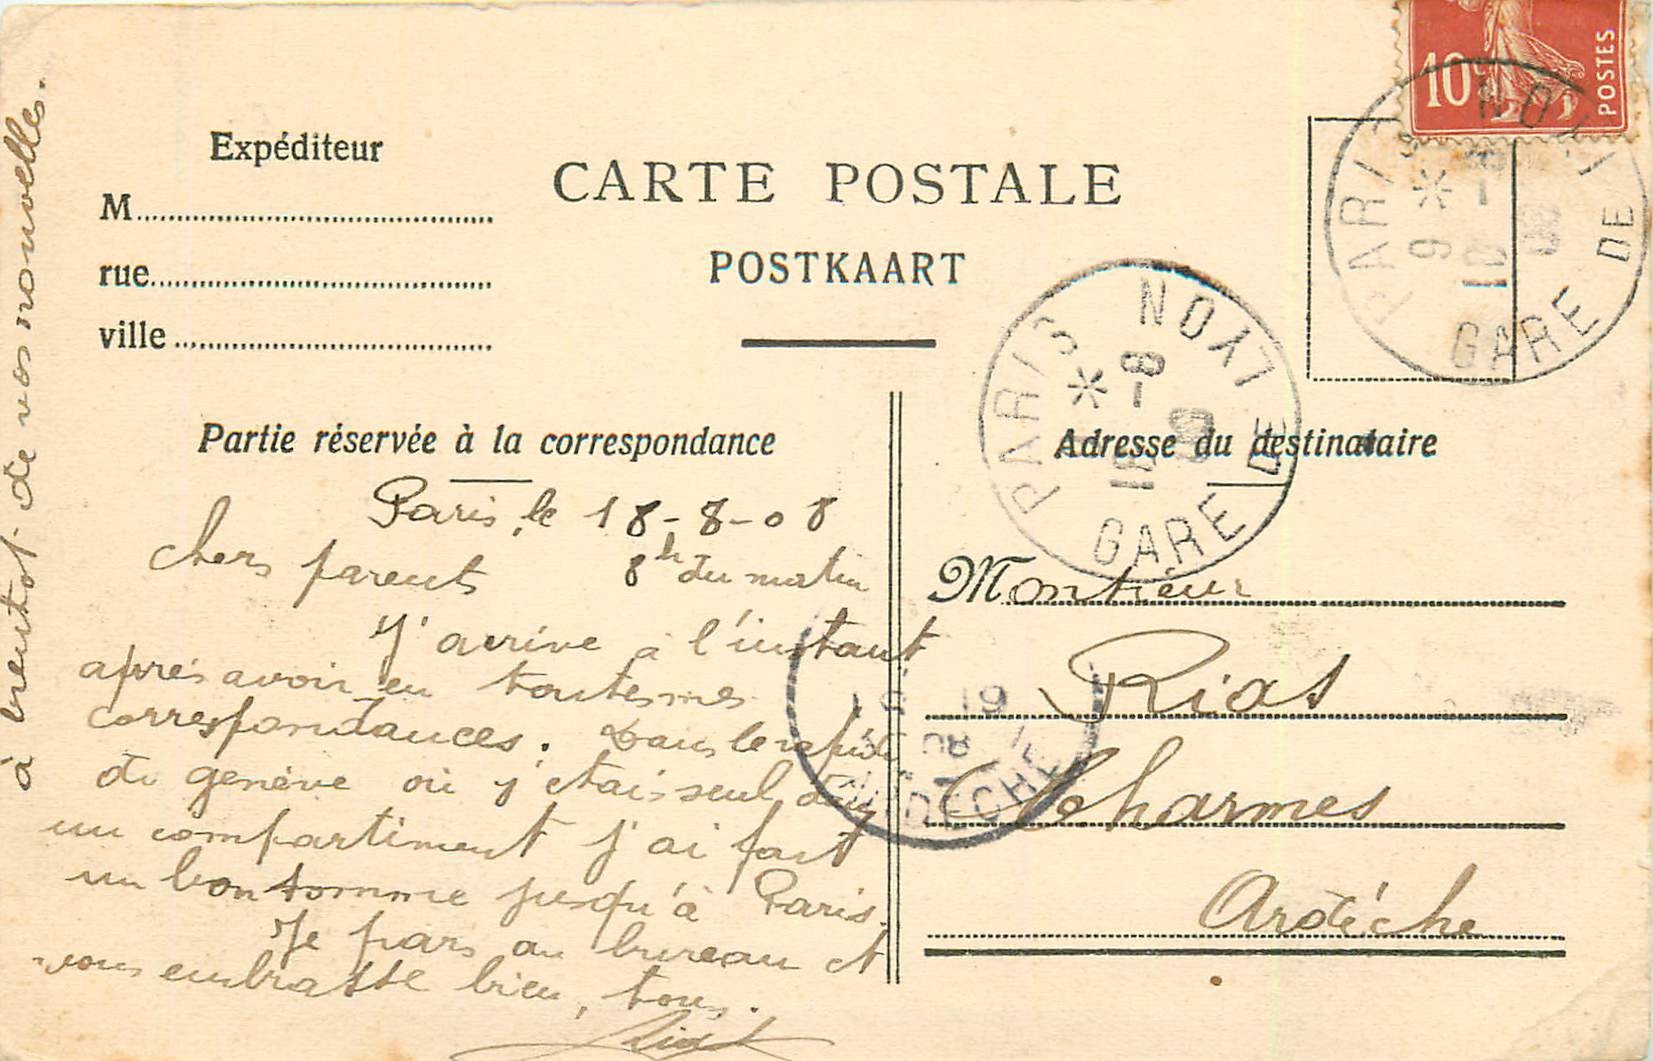 Expéditeur
M
rue
ville
CARTE POSTALE
POSTKAART
10c POSTES
PARIS GARE DE LYON
PARIS GARE DE LYON
18 - 8
Partie réservée à la correspondance
Adresse du destinataire
Paris, le 18-8-08
8h du matin
Chers parents
J'arrive à l'instant
après avoir eu toutes mes
correspondances. Dans le rapide
de genève où j'étais seul dans
un compartiment j'ai fait
un bon somme jusqu'à Paris.
Je pars au bureau et
vous embrasse bien, tous.
à bientot de vos nouvelles.
Monsieur
Rias
Charmes
Ardèche
19
08
ARDECHE